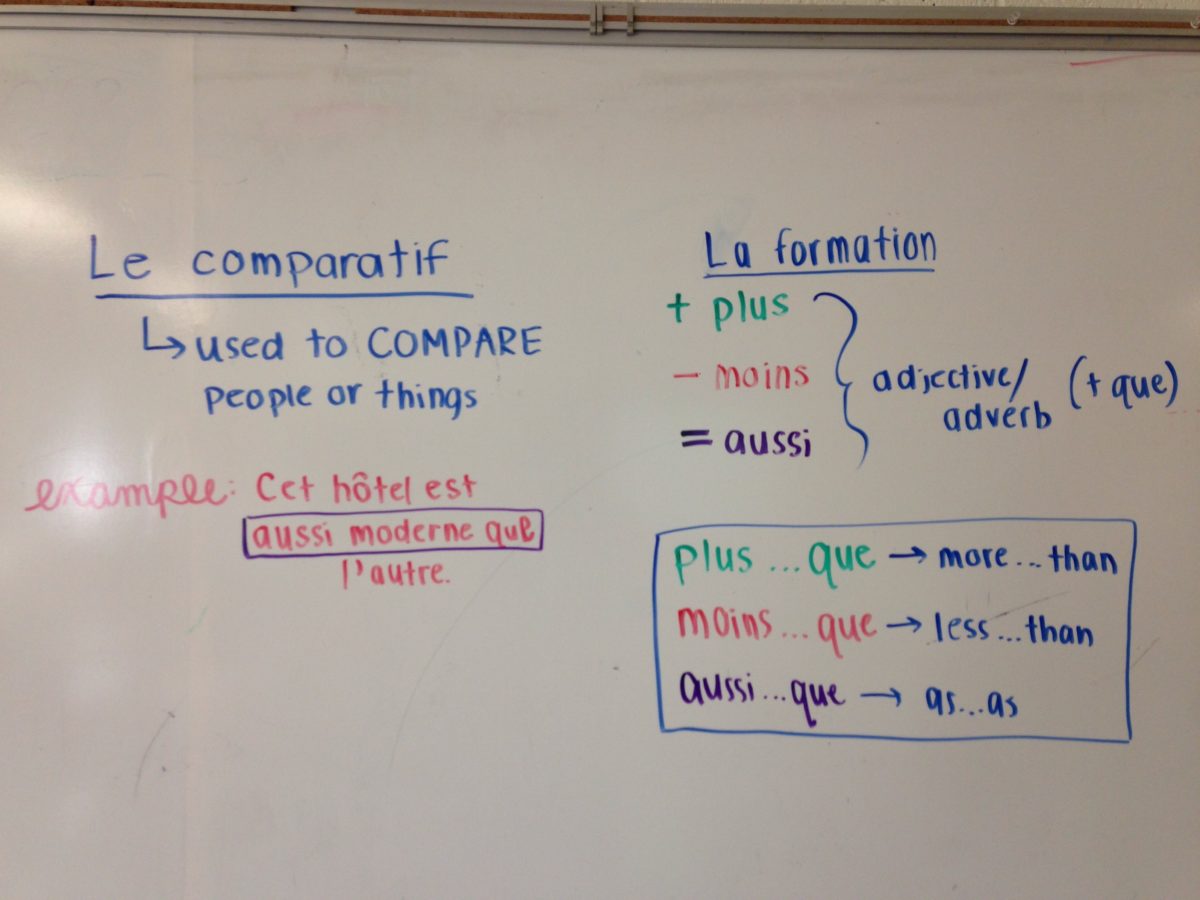 Le comparatif
↳ used to COMPARE
people or things
example: Cet hôtel est
aussi moderne que
l'autre.
La formation
+ plus
- moins
= aussi
adjective/
adverb
(+ que)
plus ... que → more ... than
moins ... que → less ... than
aussi ... que → as ... as